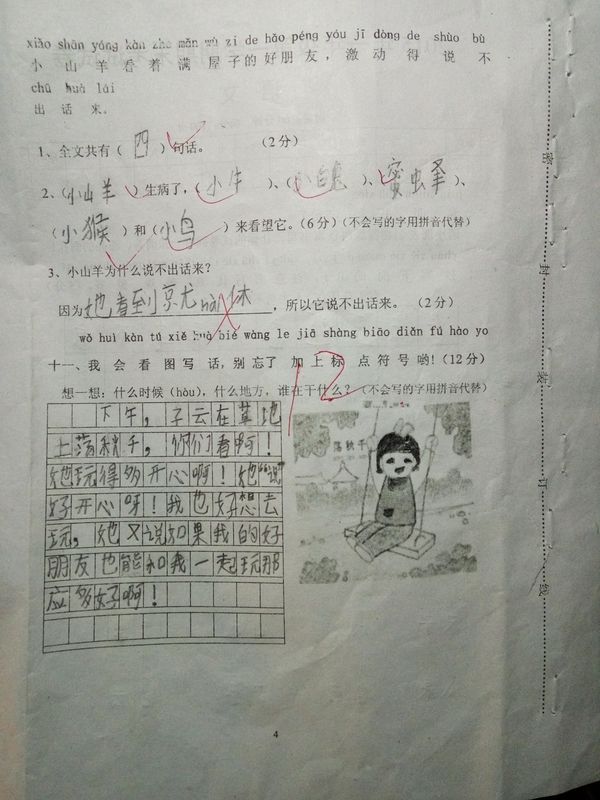 xiǎo shān yáng kàn zhe mǎn wū zi de hǎo péng yóu jī dòng de shuō bù
小山羊看着满屋子的好朋友，激动得说不
chū huà lái
出话来。
1、全文共有（四）句话。（2分）
2、（小山羊）生病了，（小牛）、（小白兔）、蜜虫）、
（小猴）和（小鸟）来看望它。（6分）（不会写的字用拼音代替）
3、小山羊为什么说不出话来？
因为她看到，所以它说不出话来。（2分）
wǒ huì kàn tú xiě huà bié wàng le jiā shàng biāo diǎn fú hào yo
十一、我会看图写话，别忘了加上标点符号哟!（12分）
12
想一想：什么时候（hòu），什么地方，谁在干什么？（不会写的字用拼音代替）
下午，子云在草地
上荡秋千，你们看啊！
她玩得多开心啊！她“说”
好开心呀！我也好想去
玩，她又说如果我的好
朋友也能和我一起玩那
应多好啊！
荡秋千
密封装订线
4